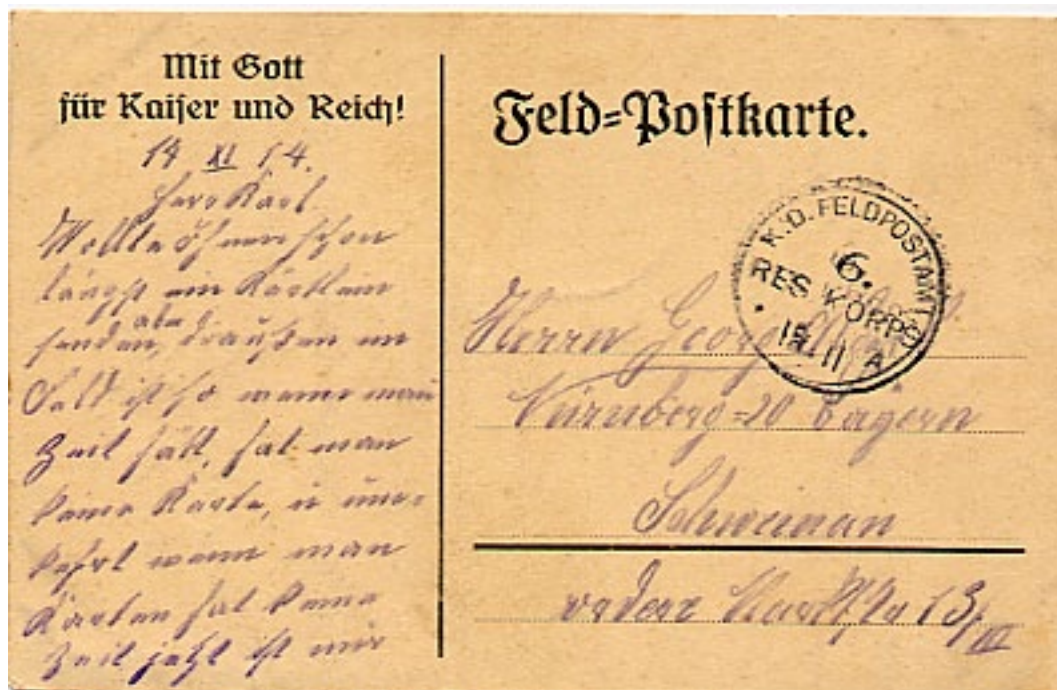 Mit Gott
für Kaiser und Reich!
14 XI 14.
Herr Karl
Wollte Ihnen schon
längst ein Kärtlein
senden, aber draußen im
Feld ist so wenn man
Zeit hätt, hat man
keine Karte, u um-
kehrt wenn man
Karten hat keine
Zeit jetzt ist mir
Feld=Postkarte.
K.D. FELDPOSTAMT
6.
RES KORPS
11 A
Herrn Georg
Nürnberg=20 Bayern
Schweinau
13/III